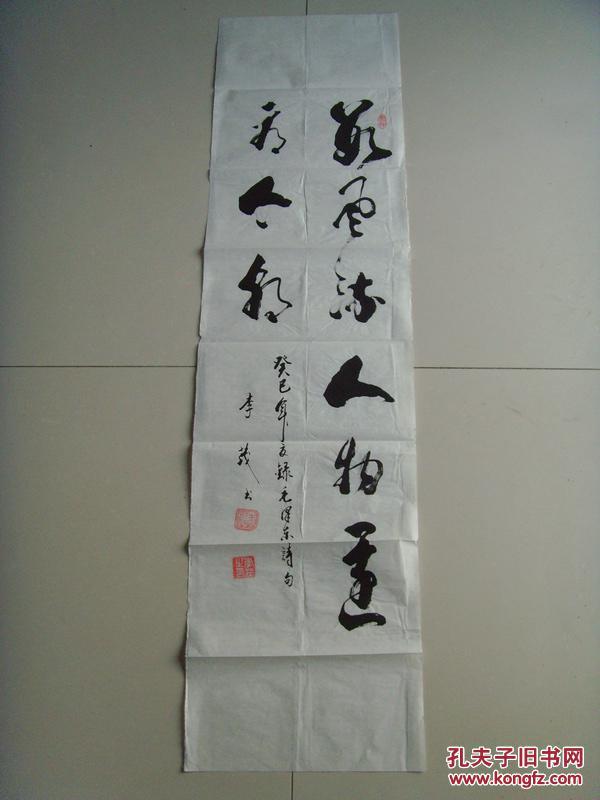 数风流人物还
看今朝
癸巳年夏录毛泽东詩句
李茂书
孔夫子旧书网
www.kongfz.com